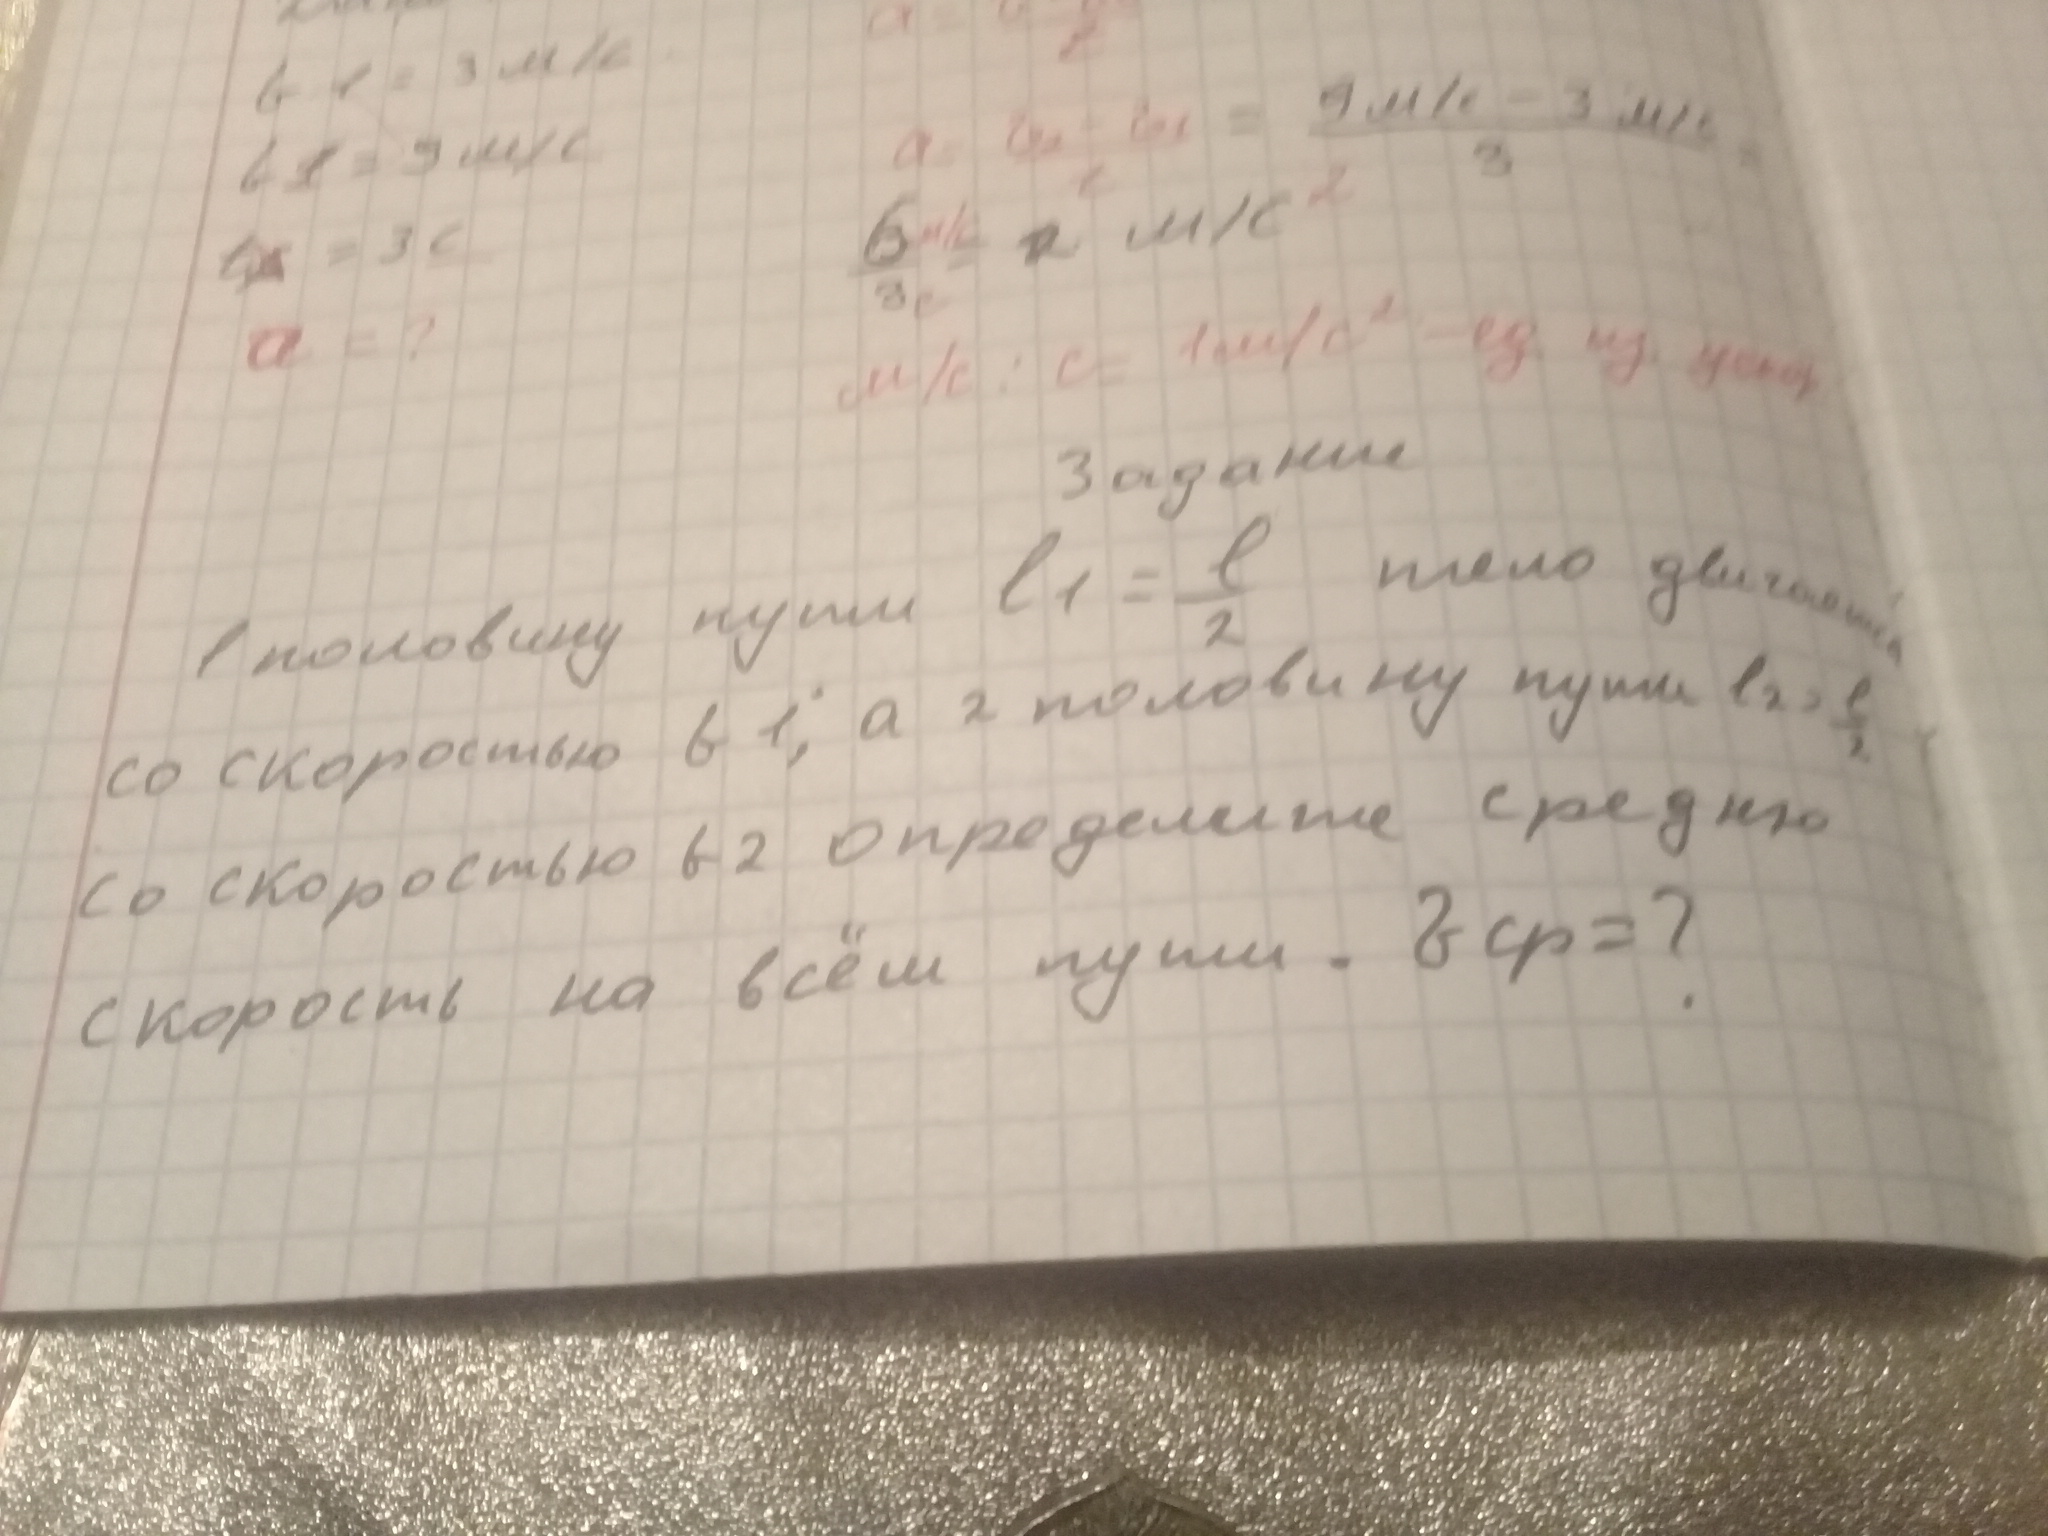 v1 = 3 м/с
v2 = 9 м/с
t = 3 с
a = ?
a = v2 - v1 / t = 9 м/с - 3 м/с / 3
6 м/с / 3 с = 2 м/с²
м/с : с = 1 м/с² - ед из уск
Задание
1 половину пути l1 = l/2 тело двигается
со скоростью v1, а 2 половину пути l2 = l/2
со скоростью v2 определите среднюю
скорость на всём пути. v ср = ?